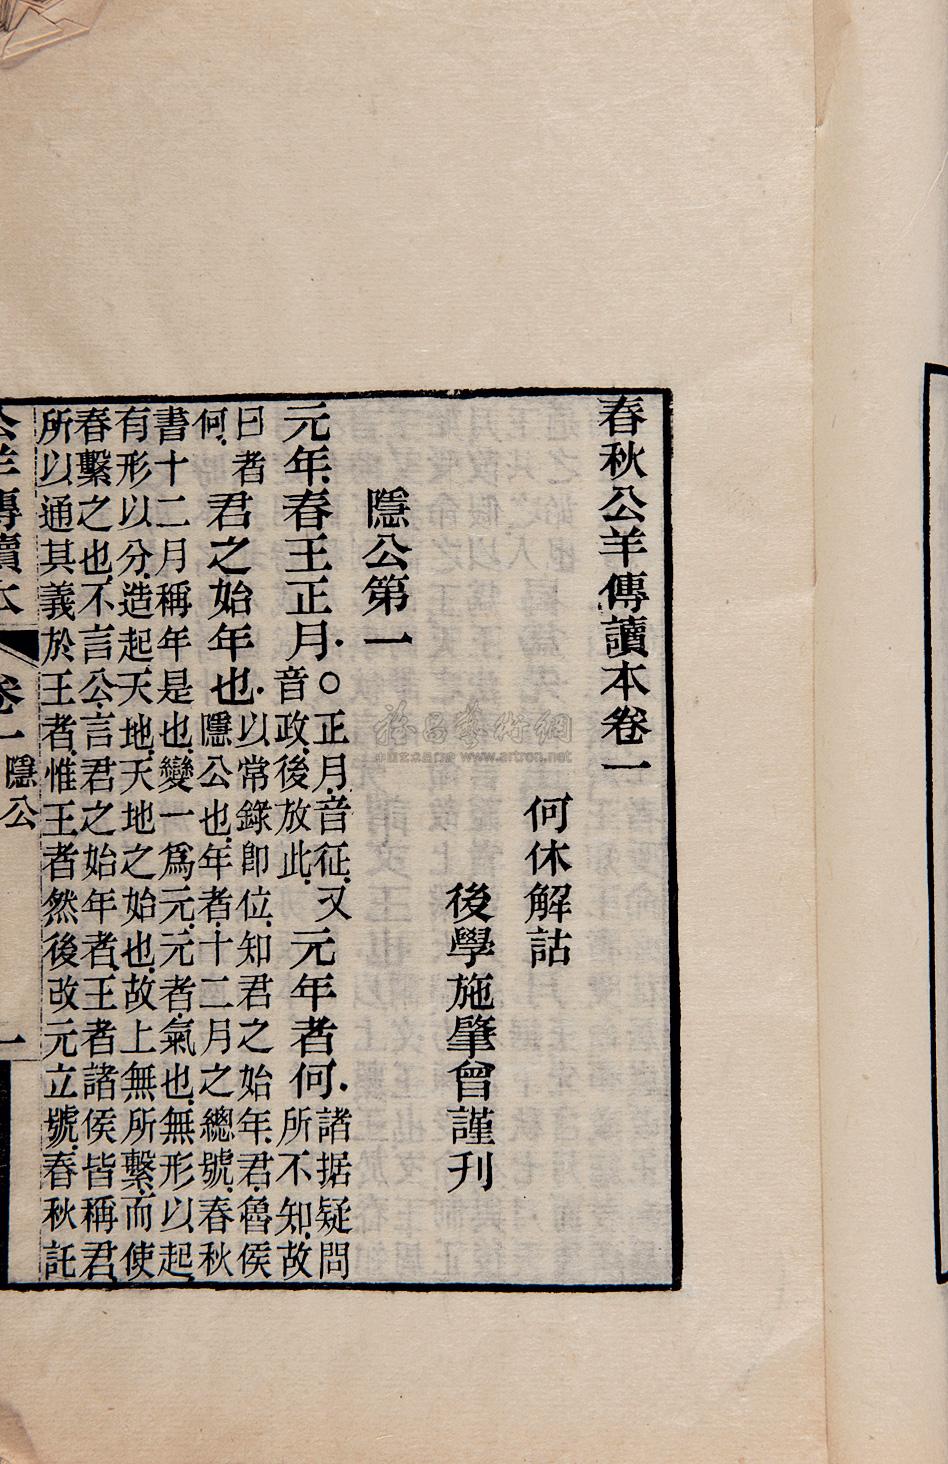 春秋公羊傳讀本卷一
何休解詁
後學施肇曾謹刊
隱公第一
元年春王正月○正月音征又音政後放此元年者何諸据疑問所不知故
曰者何君之始年也以常錄即位知君之始年君魯侯隱公也年者十二月之總號春秋
書十二月稱年是也變一爲元元者氣也無形以起
有形以分造起天地天地之始也故上無所繫而使
春繫之也不言公言君之始年者王者諸侯皆稱君
所以通其義於王者惟王者然後改元立號春秋託
公羊傳讀本 卷一 隱公 一
雅昌藝術網
www.artron.net